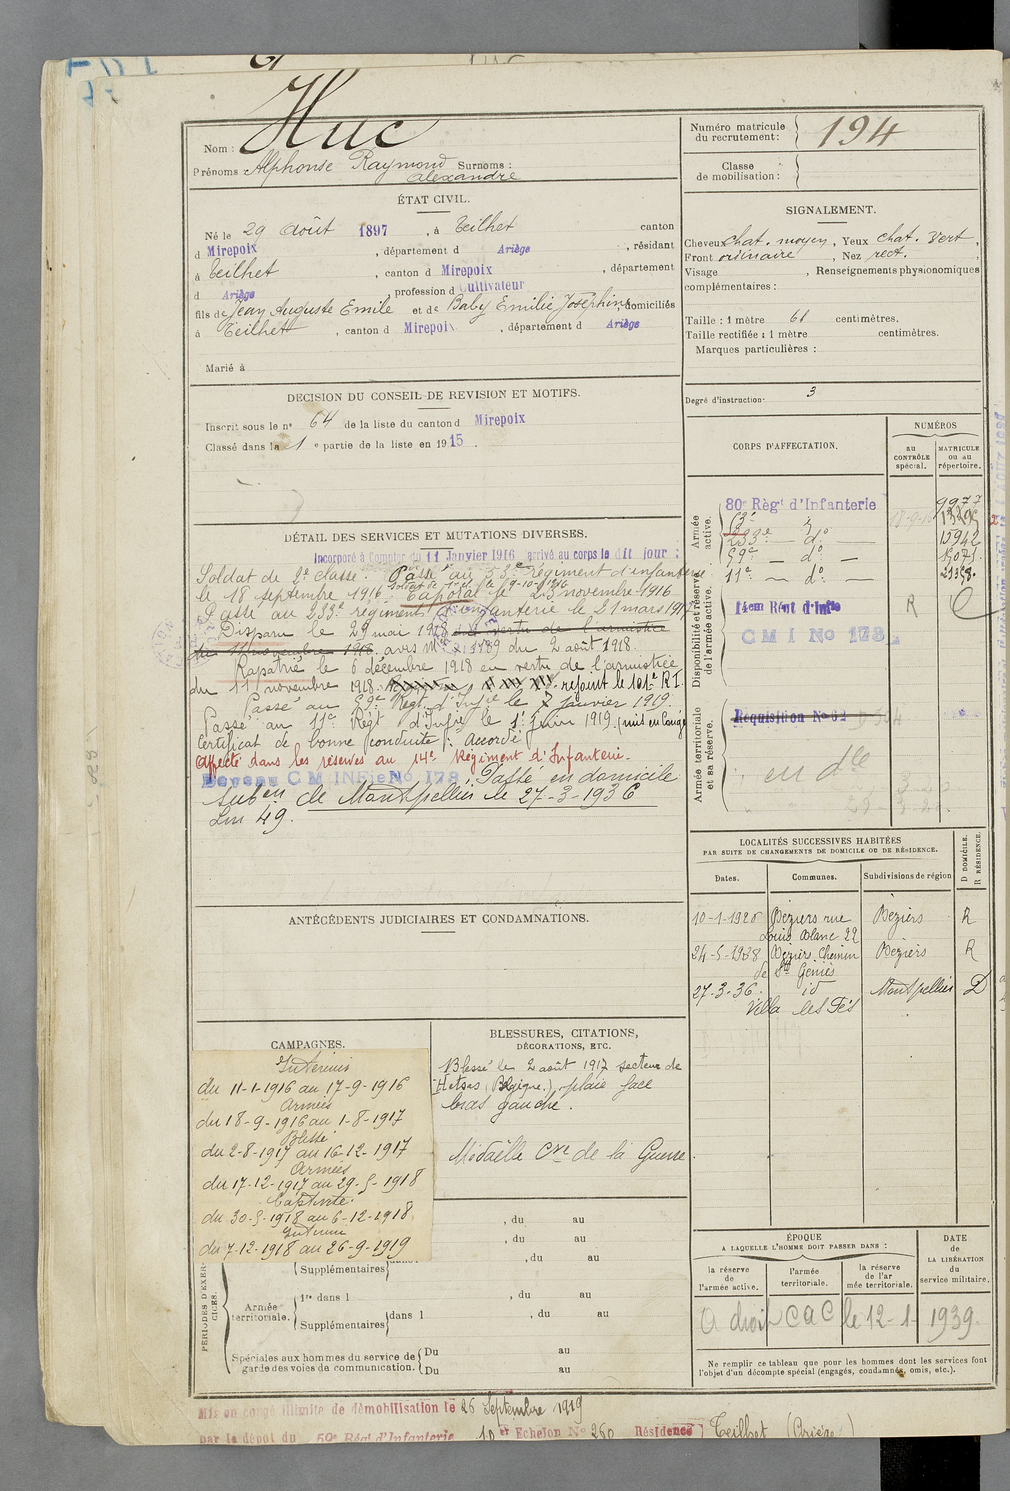 Nom : Huc
Prénoms : Alphonse Raymond Surnoms :
alexandre
ÉTAT CIVIL.
Né le 29 Août 1897, à Teilhet canton
d Mirepoix, département d Ariège, résidant
à Teilhet, canton d Mirepoix, département
d Ariège, profession d Cultivateur
fils de Jean Auguste Emile et de Baby Emilie Joséphine, domiciliés
à Teilhet, canton d Mirepoix, département d Ariège
Marié à
DECISION DU CONSEIL DE REVISION ET MOTIFS.
Inscrit sous le n° 64 de la liste du canton d Mirepoix
Classé dans la 1 e partie de la liste en 1915.
DÉTAIL DES SERVICES ET MUTATIONS DIVERSES.
Incorporé à Compter du 11 Janvier 1916 arrivé au corps le dit jour :
Soldat de 2e classe. Passé au 53e Régiment d'infanterie
le 18 septembre 1916 Caporal le 23 novembre 1916
Passé au 233e régiment d'infanterie le 21 mars 1917
Disparu le 29 mai 1918 en vertu de l'armistice
du 11 novembre 1918. avis M du 2 août 1918.
Rapatrié le 6 décembre 1918 en vertu de l'armistice
du 11 novembre 1918. rejoint le 101e R.I.
Passé au 59e Régt d'Infie le 7 janvier 1919.
Passé au 11e Régt d'Infie le 1er juin 1919 (mis en Congé
Certificat de bonne conduite : Accordé
Affecté dans les réserves au 14e Régiment d'Infanterie.
CM INFie No 178. Passé en domicile
Subon de Montpellier le 27-3-1936
Lm 49.
ANTÉCÉDENTS JUDICIAIRES ET CONDAMNATIONS.
CAMPAGNES.
Intérieur
du 11-1-1916 au 17-9-1916
Armées
du 18-9-1916 au 1-8-1917
Blessé
du 2-8-1917 au 16-12-1917
Armées
du 17-12-1917 au 29-5-1918
Captivité
du 30-5-1918 au 6-12-1918
Intérieur
du 7-12-1918 au 26-9-1919
BLESSURES, CITATIONS,
DÉCORATIONS, ETC.
Blessé le 2 août 1917 secteur de
Hetsas (Belgique), plaie face
bras gauche.
Médaille Cve de la Guerre
, du au
, du au
, du au
PÉRIODES D'EXERCICES.
Supplémentaires
Armée
territoriale.
1re dans l , du au
Supplémentaires dans l , du au
Spéciales aux hommes du service de
garde des voies de communication.
Du au
Du au
Numéro matricule
du recrutement : 194
Classe
de mobilisation :
SIGNALEMENT.
Cheveux chat. moyen, Yeux chat. vert,
Front ordinaire, Nez rect.,
Visage , Renseignements physionomiques
complémentaires :
Taille : 1 mètre 61 centimètres.
Taille rectifiée : 1 mètre centimètres.
Marques particulières :
Degré d'instruction : 3
CORPS D'AFFECTATION.
NUMÉROS
au
CONTRÔLE
spécial.
MATRICULE
ou au
répertoire.
Armée
active.
80e Régt d'Infanterie 9977
53e
233e — do — 15942
59e — do —
11e — do —
Disponibilité et réserve
de l'armée active.
14em Régt d'Infie R
CMI No 178
Armée territoriale
et sa réserve.
Réquisition No 62
en dle
LOCALITÉS SUCCESSIVES HABITÉES
PAR SUITE DE CHANGEMENTS DE DOMICILE OU DE RÉSIDENCE.
Dates. Communes. Subdivisions de région
D DOMICILE.
R RÉSIDENCE.
10-1-1920 Béziers rue Béziers R
Louis Blanc 22
24-5-1938 Béziers Chemin Béziers R
de St Géniès
27-3-36. id Montpellier D
Villa les Fés
ÉPOQUE
A LAQUELLE L'HOMME DOIT PASSER DANS :
la réserve
de
l'armée active.
l'armée
territoriale.
la réserve
de l'ar
mée territoriale.
DATE
de
LA LIBÉRATION
du
service militaire.
A droit CAC le 12-1-1939.
Ne remplir ce tableau que pour les hommes dont les services font
l'objet d'un décompte spécial (engagés, condamnés, omis, etc.).
Mis en congé illimité de démobilisation le 26 Septembre 1919
par le dépôt du 59e Régt d'Infanterie 10er Echelon No 260 Résidence Teilhet (Ariège)